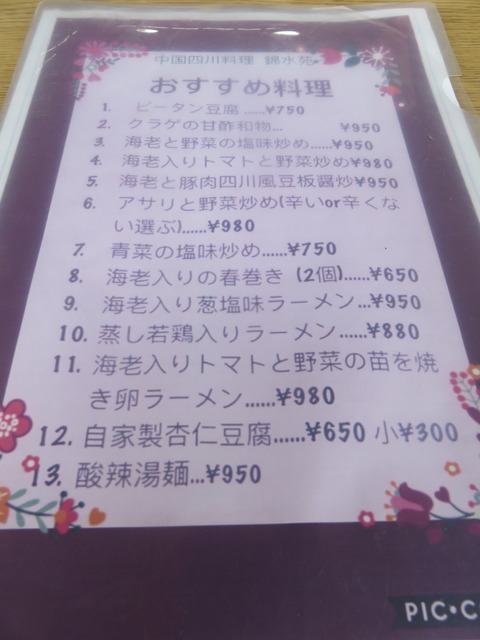 中国四川料理 錦水苑
おすすめ料理
1. ピータン豆腐 ......¥750
2. クラゲの甘酢和物... ¥950
3. 海老と野菜の塩味炒め......¥950
4. 海老入りトマトと野菜炒め¥980
5. 海老と豚肉四川風豆板醤炒¥950
6. アサリと野菜炒め(辛いor辛くな
い選ぶ)......¥980
7. 青菜の塩味炒め......¥750
8. 海老入りの春巻き (2個)......¥650
9. 海老入り葱塩味ラーメン...¥950
10. 蒸し若鶏入りラーメン......¥880
11. 海老入りトマトと野菜の苗を焼
き卵ラーメン......¥980
12. 自家製杏仁豆腐......¥650 小¥300
13. 酸辣湯麺...¥950